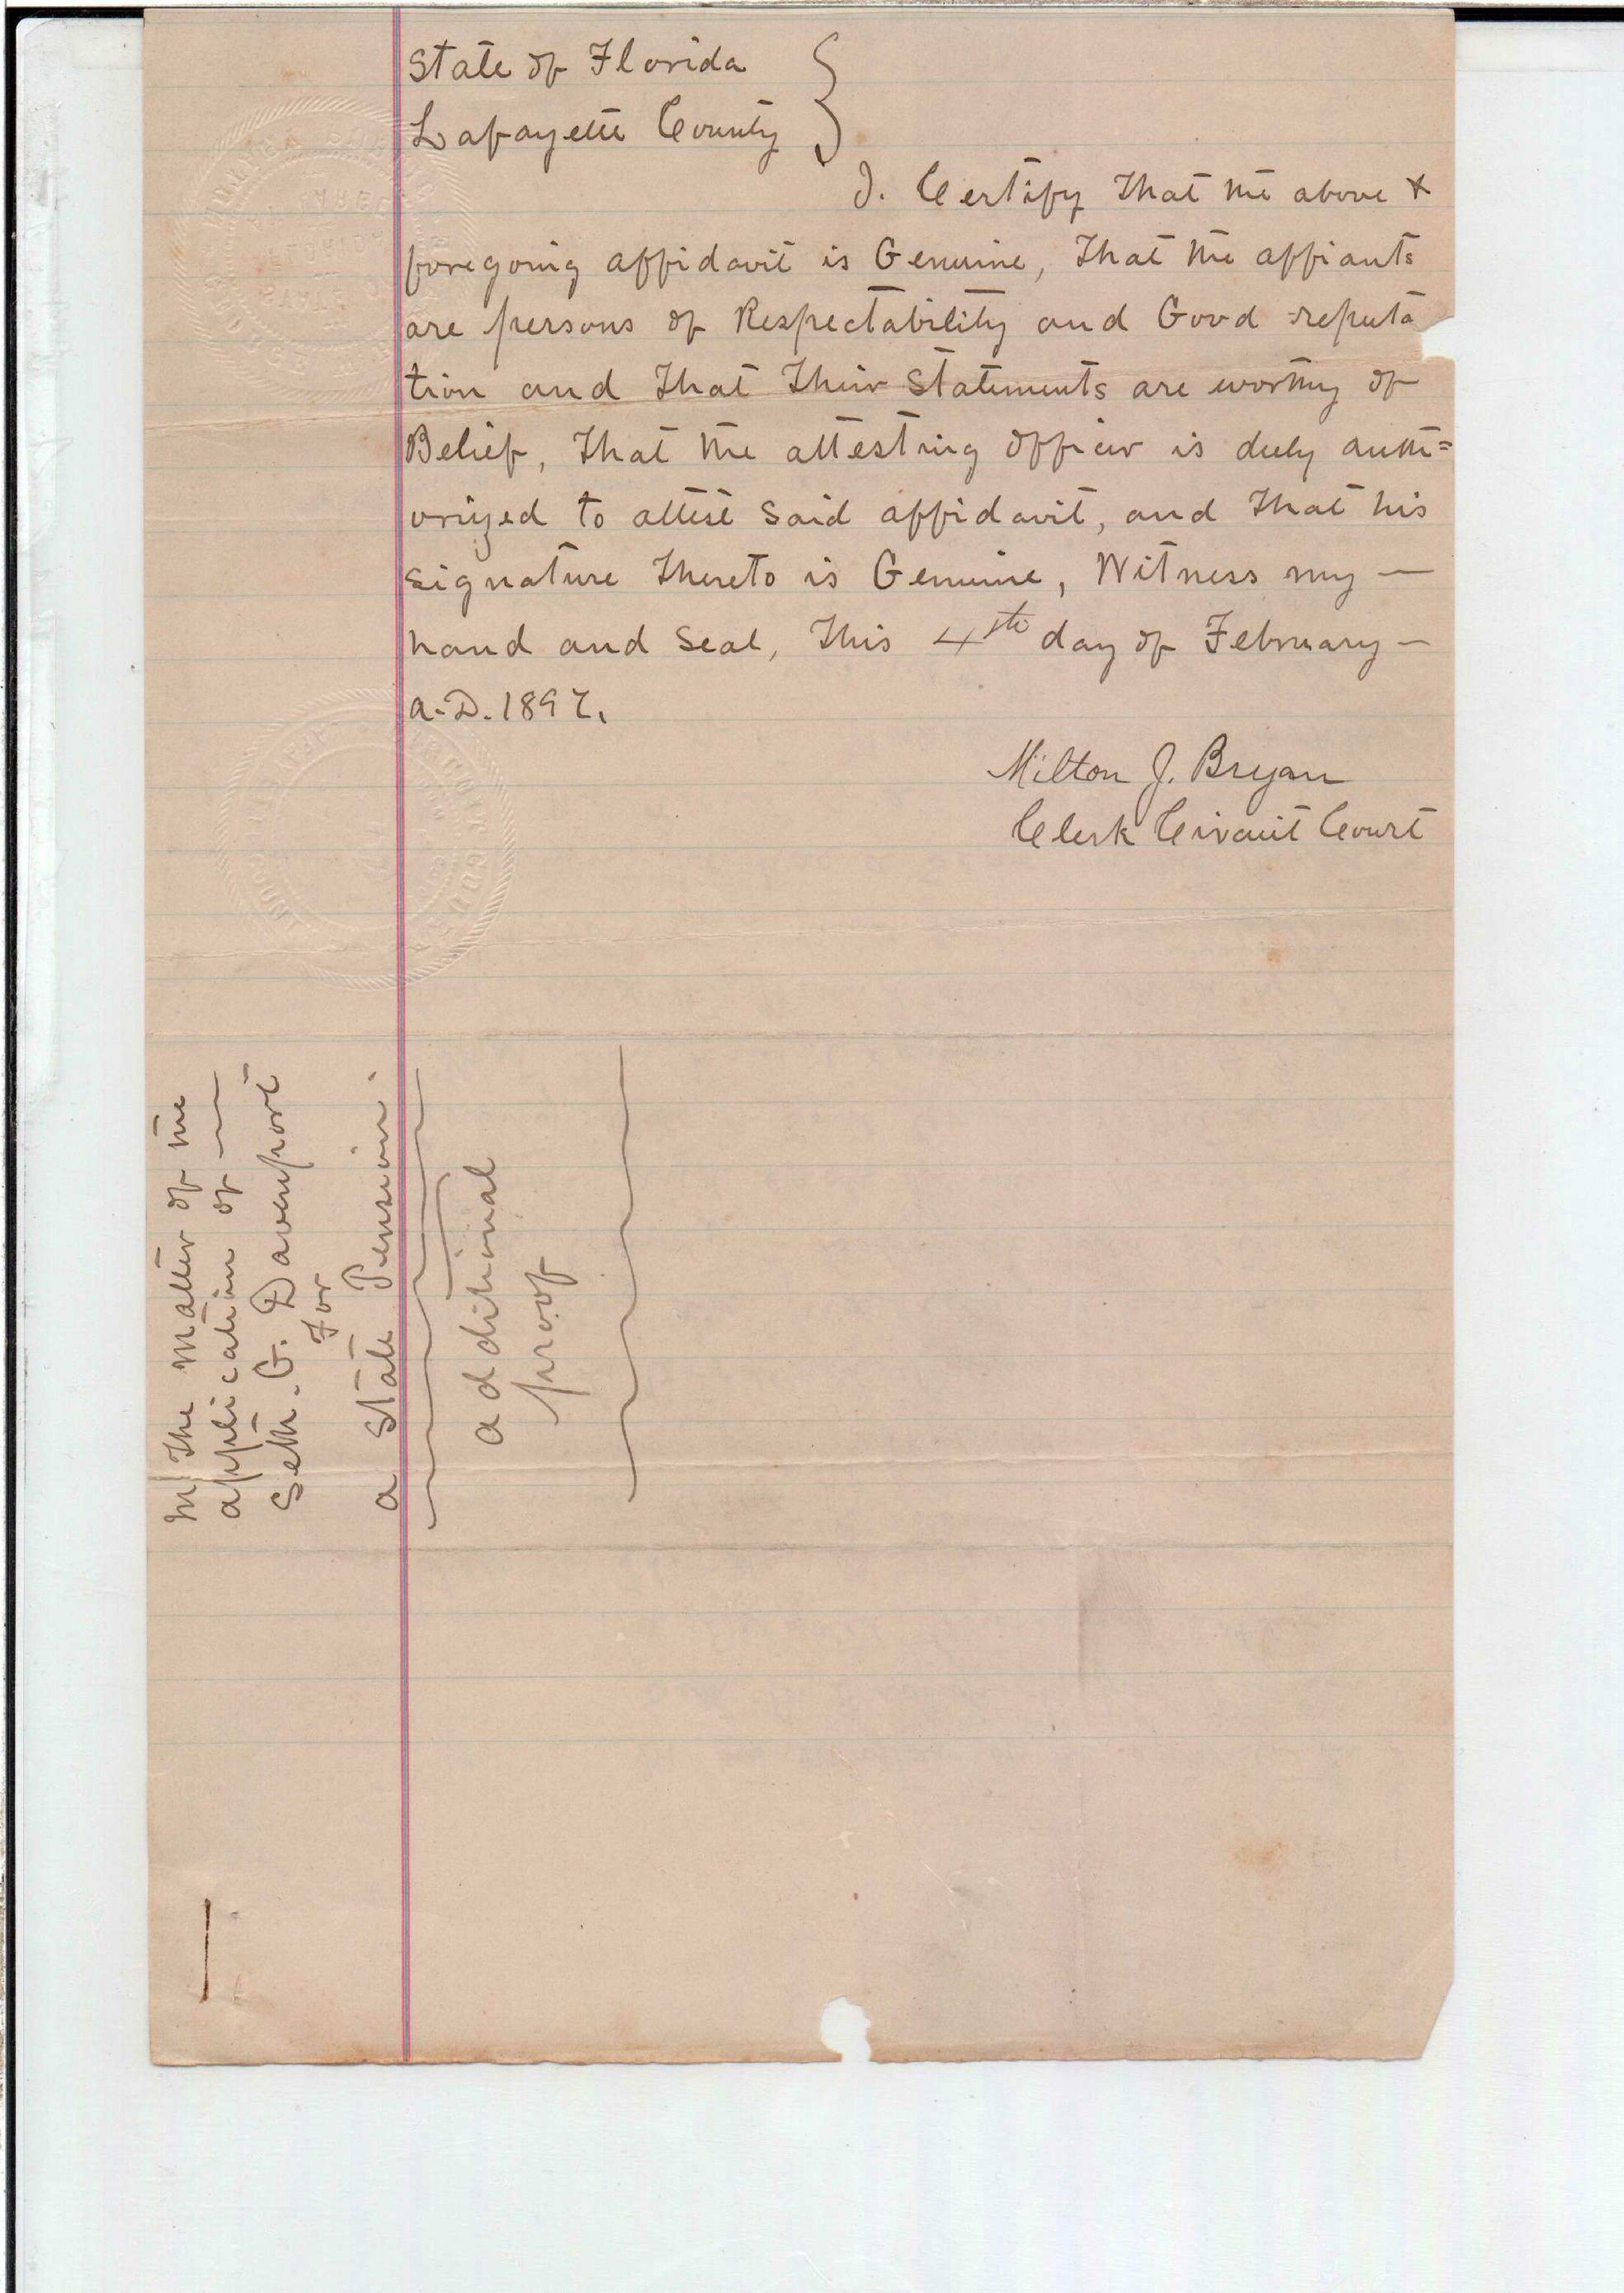 State of Florida
Lafayette County
I. Certify That the above &
foregoing affidavit is Genuine, That the affiants
are persons of Respectability and Good reputa
tion and That Their Statements are worthy of
Belief, That the attesting officer is duly auth=
orized to attest said affidavit, and That his
signature Thereto is Genuine, Witness my —
hand and seal, This 4th day of February —
a.D. 1897.
Milton J. Bryan
Clerk Circuit Court
In The Matter of the
application of —
Seth. G. Davenport
For
a State Pension.
additional
proof